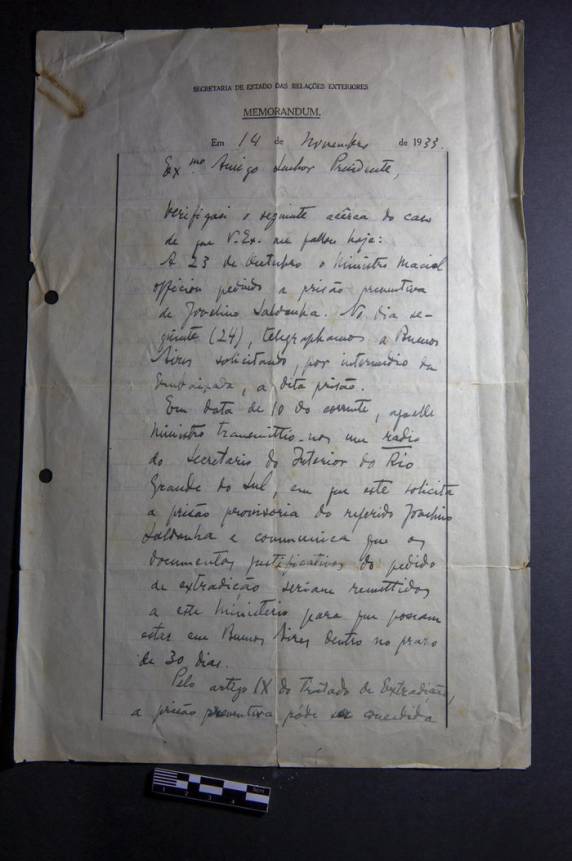 SECRETARIA DE ESTADO DAS RELAÇÕES EXTERIORES
MEMORANDUM.
Em 14 de Novembro de 1933.
Ex.mo Amigo Senhor Presidente,
Verifiquei o seguinte acêrca do caso
de que V. Ex. me fallou hoje:
A 23 de Outubro o Ministro Maciel
officiou pedindo a prisão preventiva
de Jovelino Saldanha. No dia se-
guinte (24), telegraphamos a Buenos
Aires solicitando, por intermedio da
Embaixada, a dita prisão.
Em data de 10 do corrente, aquelle
Ministro transmittio-nos um radio
do Secretario do Interior do Rio
Grande do Sul, em que este solicita
a prisão provisoria do referido Jovelino
Saldanha e communica que os
documentos justificativos do pedido
de extradição seriam remettidos
a este Ministerio para que possam
estar em Buenos Aires dentro no prazo
de 30 dias.
Pelo artigo IX do Tratado de Extradição,
a prisão preventiva póde ser concedida